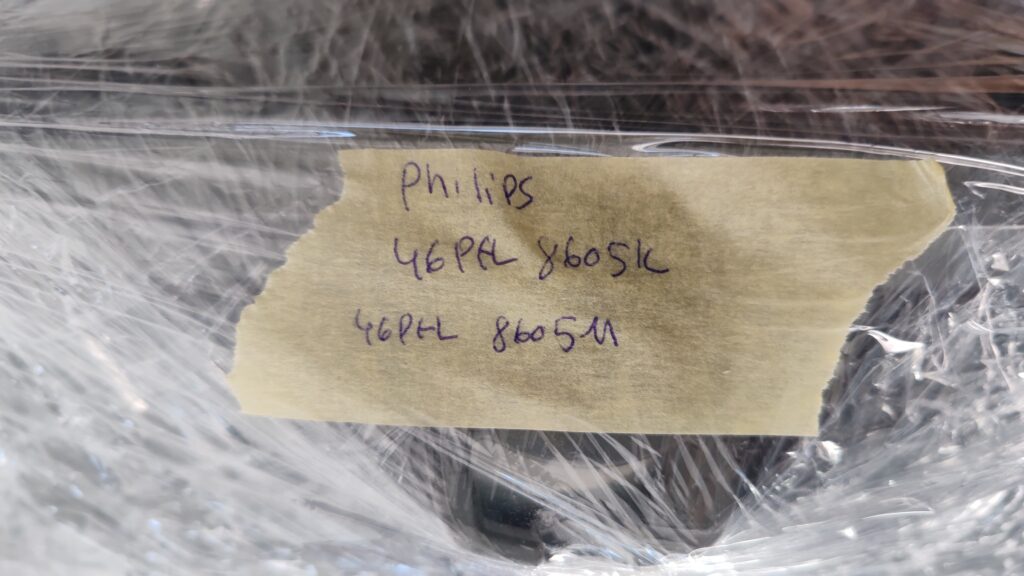 Philips
46PFL 8605K
46PFL 8605M